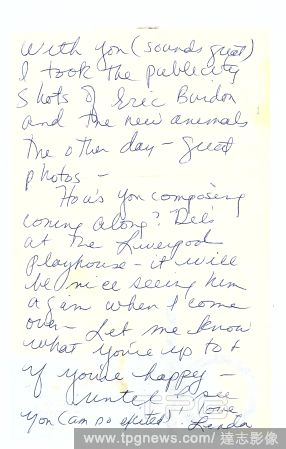 with you (sounds great)
I took the publicity
shots of Eric Burdon
and the new animals
the other day - great
photos -
How's you composing
coming along? Dels
at the Liverpool
playhouse - it will
be nice seeing him
again when I come
over - Let me know
what you're up to +
if you're happy -
until I see
you (am so excited) Love
Linda
www.tpgnews.com/達志影像